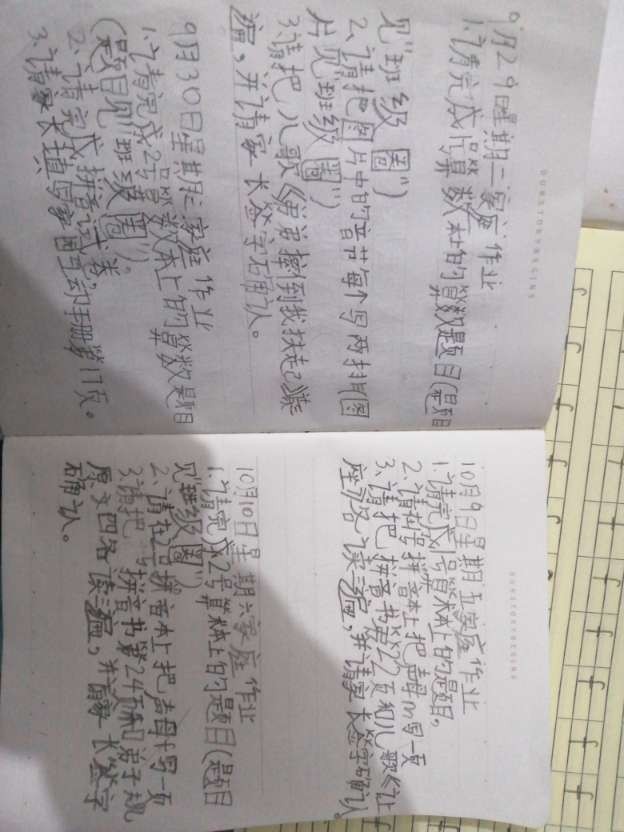 9月29星期二家庭作业
1.请完成1号算数本的算数题目(题目
见"班级圈")
2、请把图片中的音节每个写两排(图
片见"班级圈")
3.请把儿歌《弟弟摔倒我扶起》读
遍,并请家长签字确认。
9月30日星期三家庭作业
1.请完成2号算数本上的算数题目
(题目见"班级圈")。
2、请完成拼音试卷,
3.请家长填写家园互动手册第17页。
10月9日星期五家庭作业
1.请完成1号算本上的题目,
2.请在写拼音本上把声母m写一页
3.请把拼音书第22页和儿歌《让
座》各读三遍,并请家长签字确认。
10月10日星期六家庭作业
1.请完成2号算本上的题目(题目
见"班级圈")
2、请在拼音本上把声母 写一页
3.请把拼音书第24页和弟子规
原文四名读三遍,并请家长签字
确认。